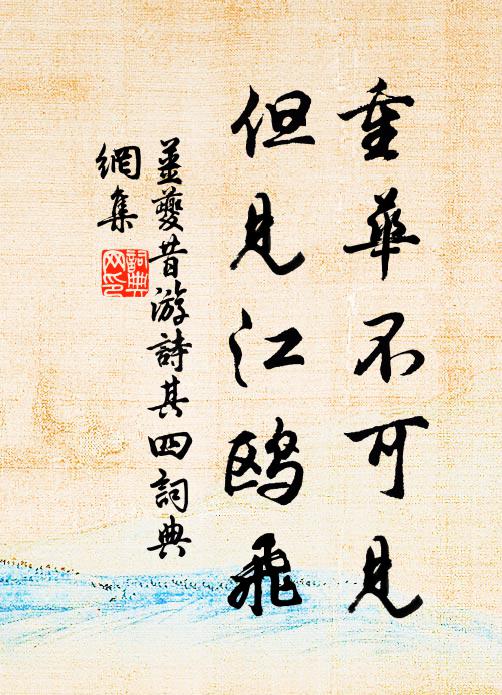 重華不可見
但見江鸥飛
姜夔昔游詩其四詞典
網集
詞典网印